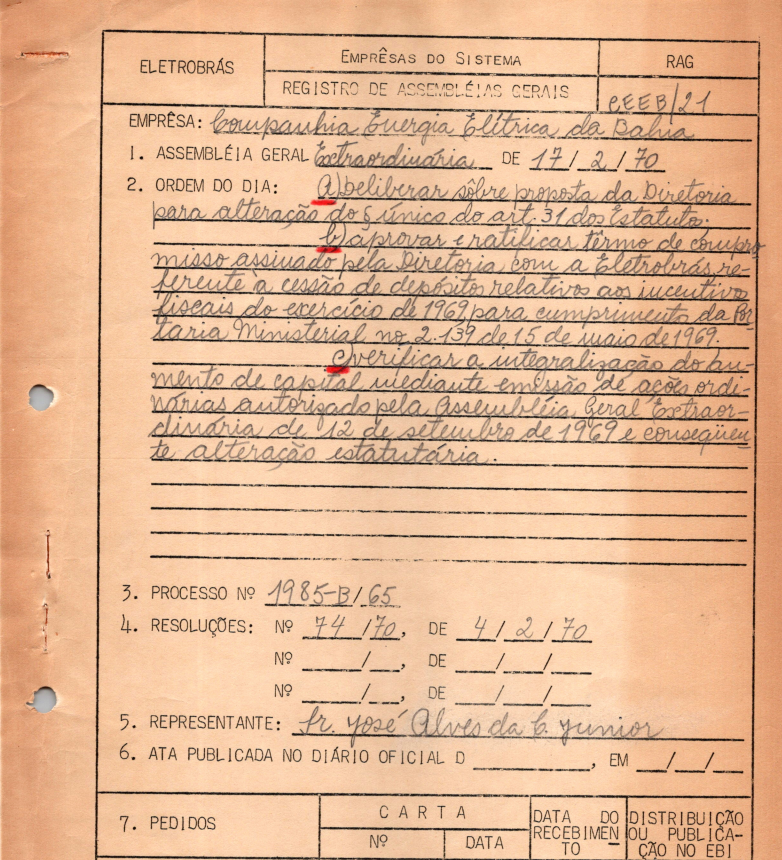 ELETROBRÁS
EMPRÊSAS DO SISTEMA
RAG
REGISTRO DE ASSEMBLÉIAS GERAIS
CEEB/21
EMPRÊSA: Companhia Energia Elétrica da Bahia
1. ASSEMBLÉIA GERAL Extraordinária DE 17/2/70
2. ORDEM DO DIA: a) Deliberar sôbre proposta da Diretoria
para alteração do § único do art. 31 dos Estatuto.
b) aprovar e ratificar têrmo de compro
misso assinado pela Diretoria com a Eletrobrás, re-
ferente à cessão de depósitos relativos aos incentivos
fiscais do exercício de 1969 para cumprimento da Por
taria Ministerial no 2.139 de 15 de maio de 1969.
c) verificar a integralização do au-
mento de capital mediante emissão de ações ordi-
nárias autorizado pela Assembléia Geral Extraor-
dinária de 12 de setembro de 1969 e conseqüen
te alteração estatutária.
3. PROCESSO Nº 1985-B/65
4. RESOLUÇÕES: Nº 74/70, DE 4/2/70
Nº /, DE / /
Nº /, DE / /
5. REPRESENTANTE: Sr. José Alves da C. Junior
6. ATA PUBLICADA NO DIÁRIO OFICIAL D , EM / /
7. PEDIDOS
CARTA
Nº
DATA
DATA DO
RECEBIMEN
TO
DISTRIBUIÇÃO
OU PUBLICA-
ÇÃO NO EBI